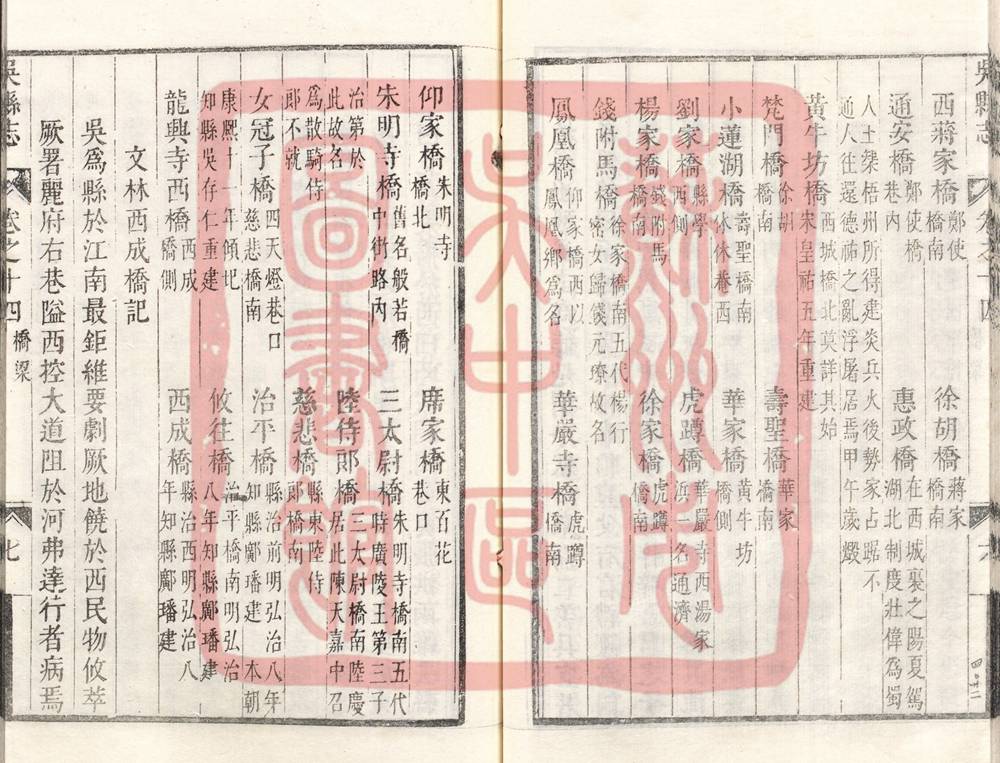 吳縣志
西蔣家橋 鄭使橋南 徐胡橋 蔣家橋南
通安橋 鄭使橋巷內 惠政橋 在西城裏之陽夏駕湖北制度壯偉爲蜀
人士梁梧州所得建炎兵火後勢家占踞不
通人往還德祐之亂浮屠居焉甲午歲燬
黃牛坊橋 西城橋北莫詳其始宋皇祐五年重建
梵門橋 徐胡橋南 壽聖橋 華家橋南
小蓮湖橋 壽聖橋南休休巷西 華家橋 黃牛坊橋側
劉家橋 縣學西側 虎蹲橋 華嚴寺西湯家浜一名通濟
楊家橋 錢附馬橋南 徐家橋 虎蹲橋南
錢附馬橋 徐家橋南五代楊行密女歸錢元故名
鳳凰橋 仰家橋西以鳳凰鄉爲名 華嚴寺橋 虎蹲橋南
仰家橋 朱明寺橋北 席家橋 東百花巷口
朱明寺橋 舊名般若橋中街路內 三太尉橋 朱明寺橋南五代時廣陵王第三子
治第於此故名 陸侍郎橋 三太尉橋南陸慶居此陳天嘉中召
爲散騎侍郎不就 慈悲橋 縣東陸侍郎橋南
女冠子橋 四天燈巷口慈悲橋南 治平橋 縣治前明弘治八年知縣鄺璠建本朝
康熙十一年傾圮知縣吳存仁重建 攸往橋 治平橋南明弘治八年知縣鄺璠建
龍興寺西橋 西成橋側 西成橋 縣治西明弘治八年知縣鄺璠建
文林西成橋記
吳爲縣於江南最鉅維要劇厥地饒於西民物攸萃
厥署麗府右巷隘西控大道阻於河弗達行者病焉
吳縣志 卷之十四 橋梁 七